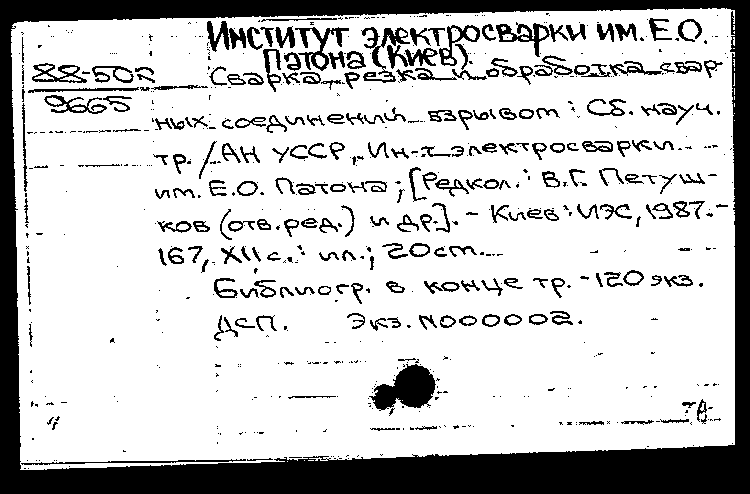 Институт электросварки им. Е.О.
Патона (Киев).
88-502
Сварка, резка и обработка свар-
9665
ных соединений взрывом : Сб. науч.
тр. / АН УССР, Ин-т электросварки
им. Е.О. Патона; [Редкол.: В.Г. Петуш-
ков (отв. ред.) и др.]. - Киев : ИЭС, 1987. -
167, XII с. : ил.; 20 см.
Библиогр. в конце тр. - 120 экз.
ДСП. Экз. N000002.